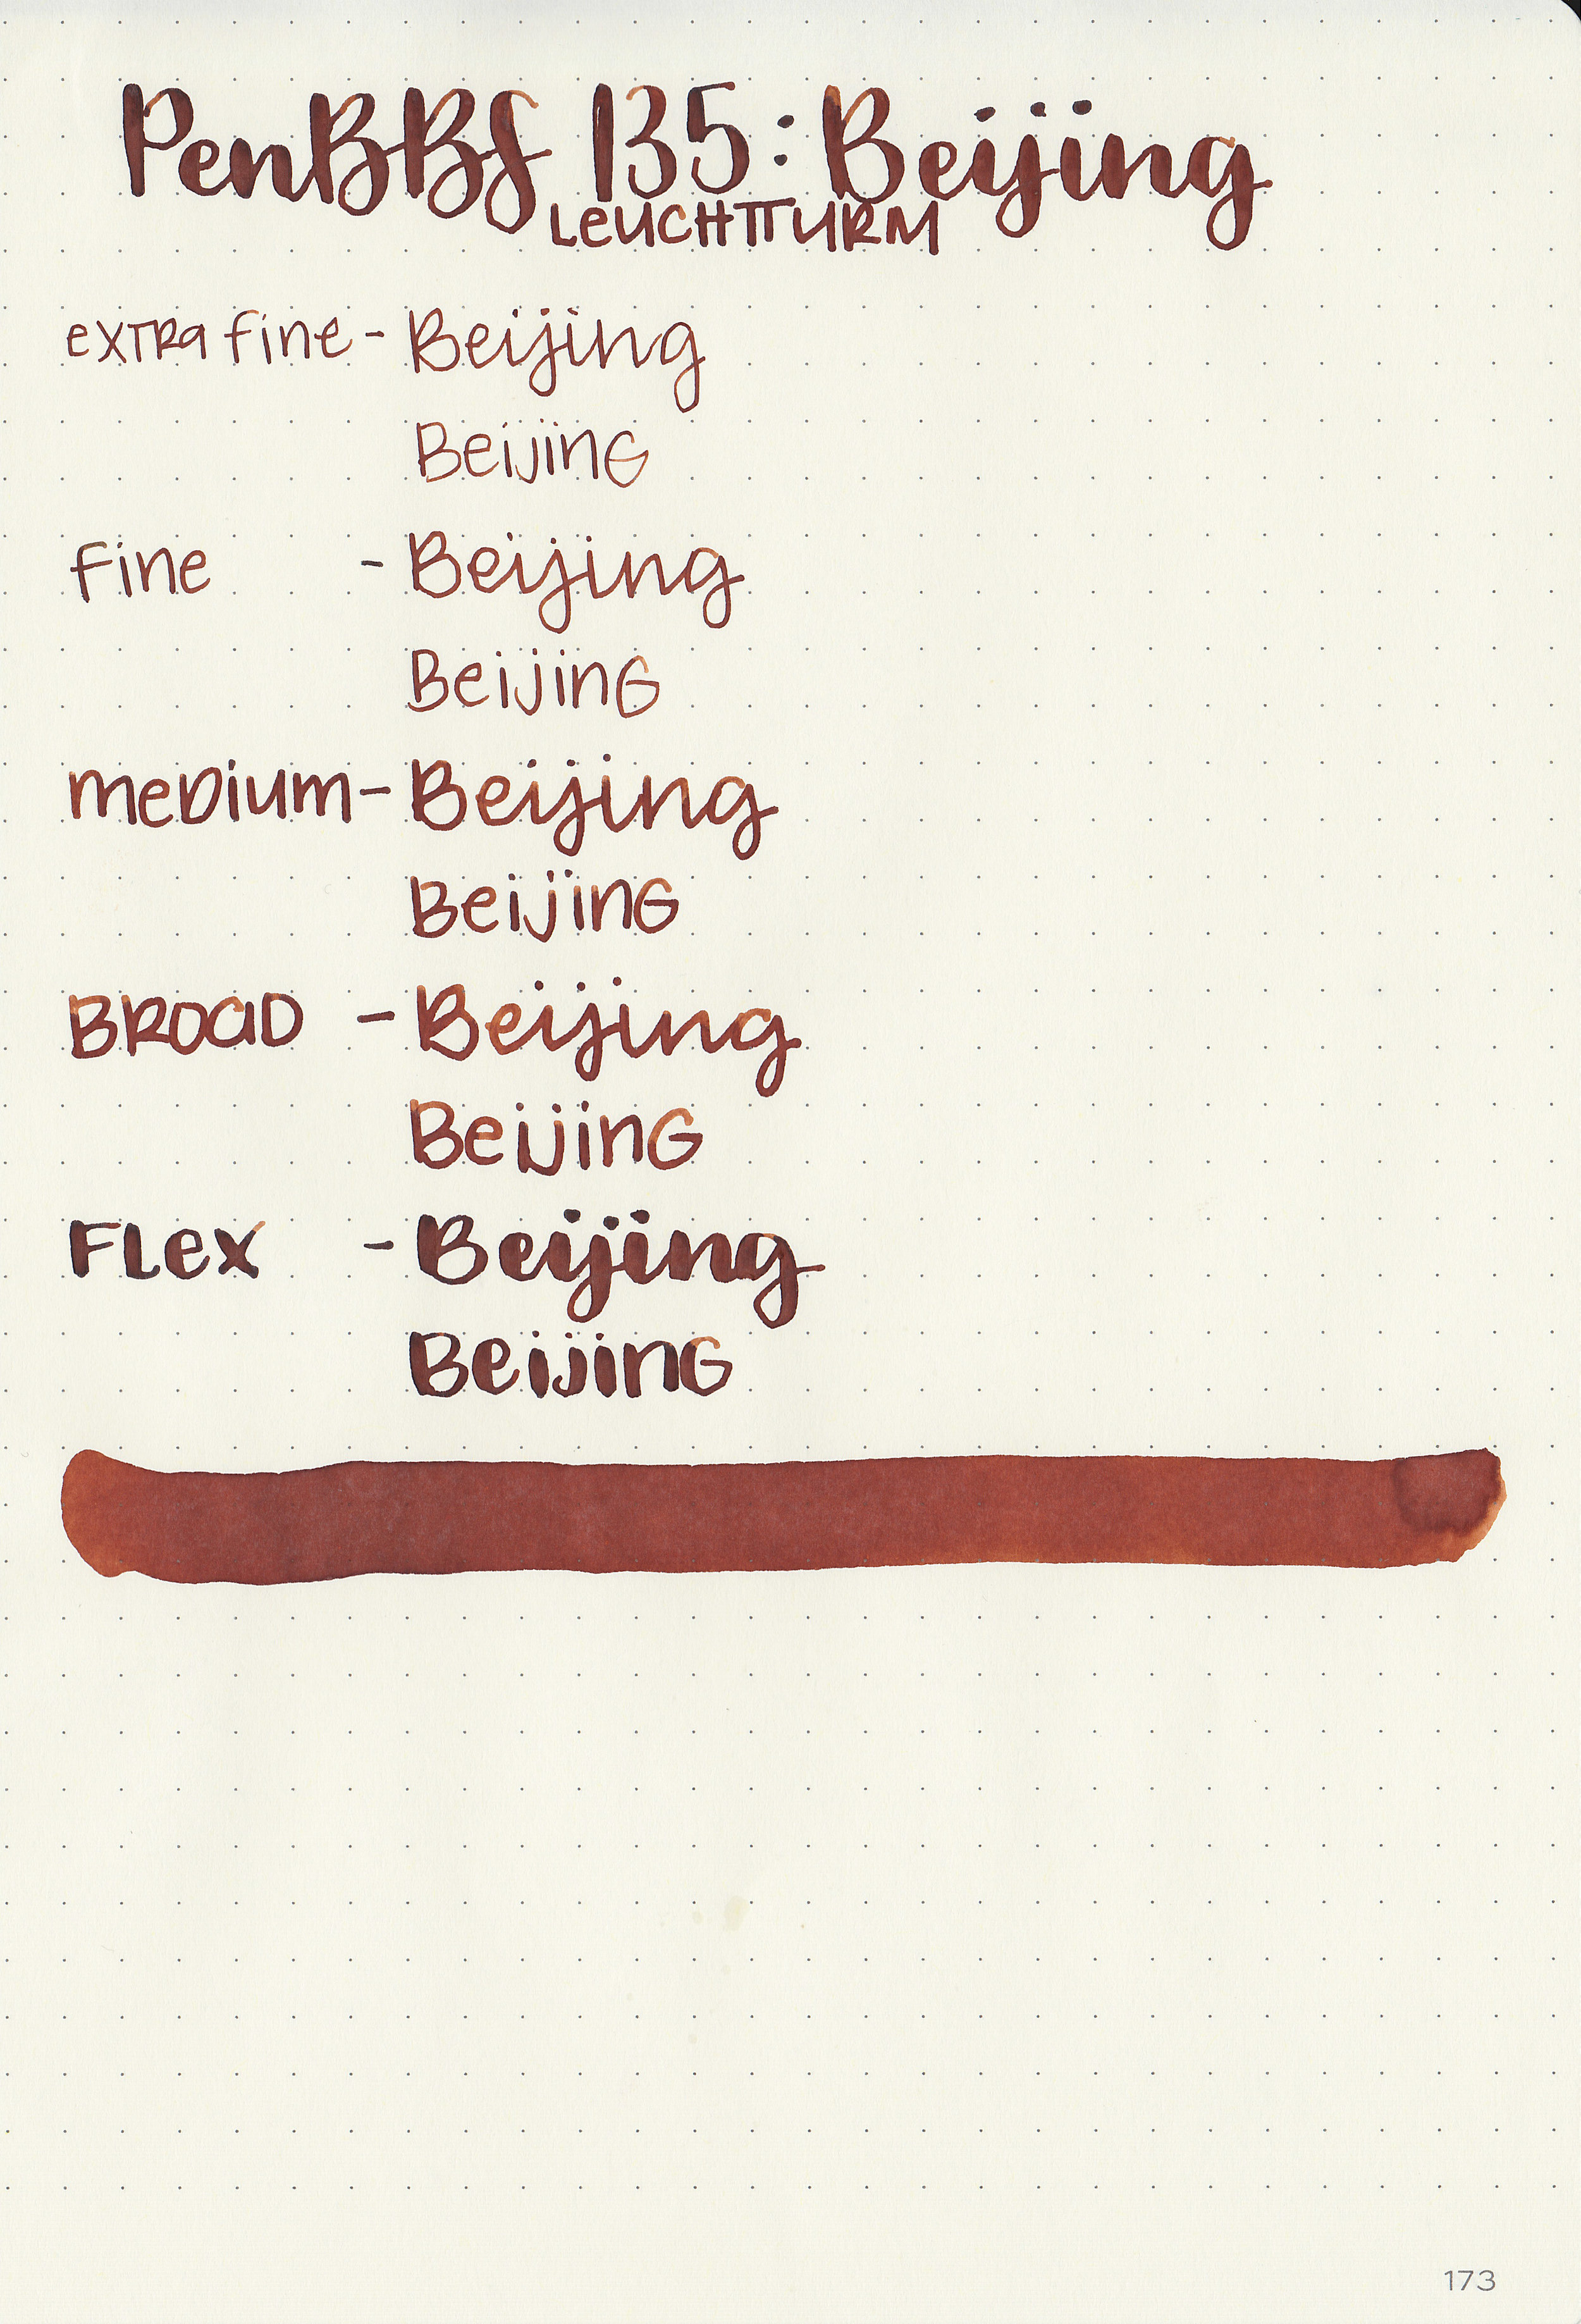 PenBBS 135: Beijing
LeUCHTTURM
eXTRa fine - Beijing
BeijinG
fine - Beijing
BeijinG
meDium - Beijing
BeijinG
BROaD - Beijing
BeijinG
FLex - Beijing
BeijinG
173